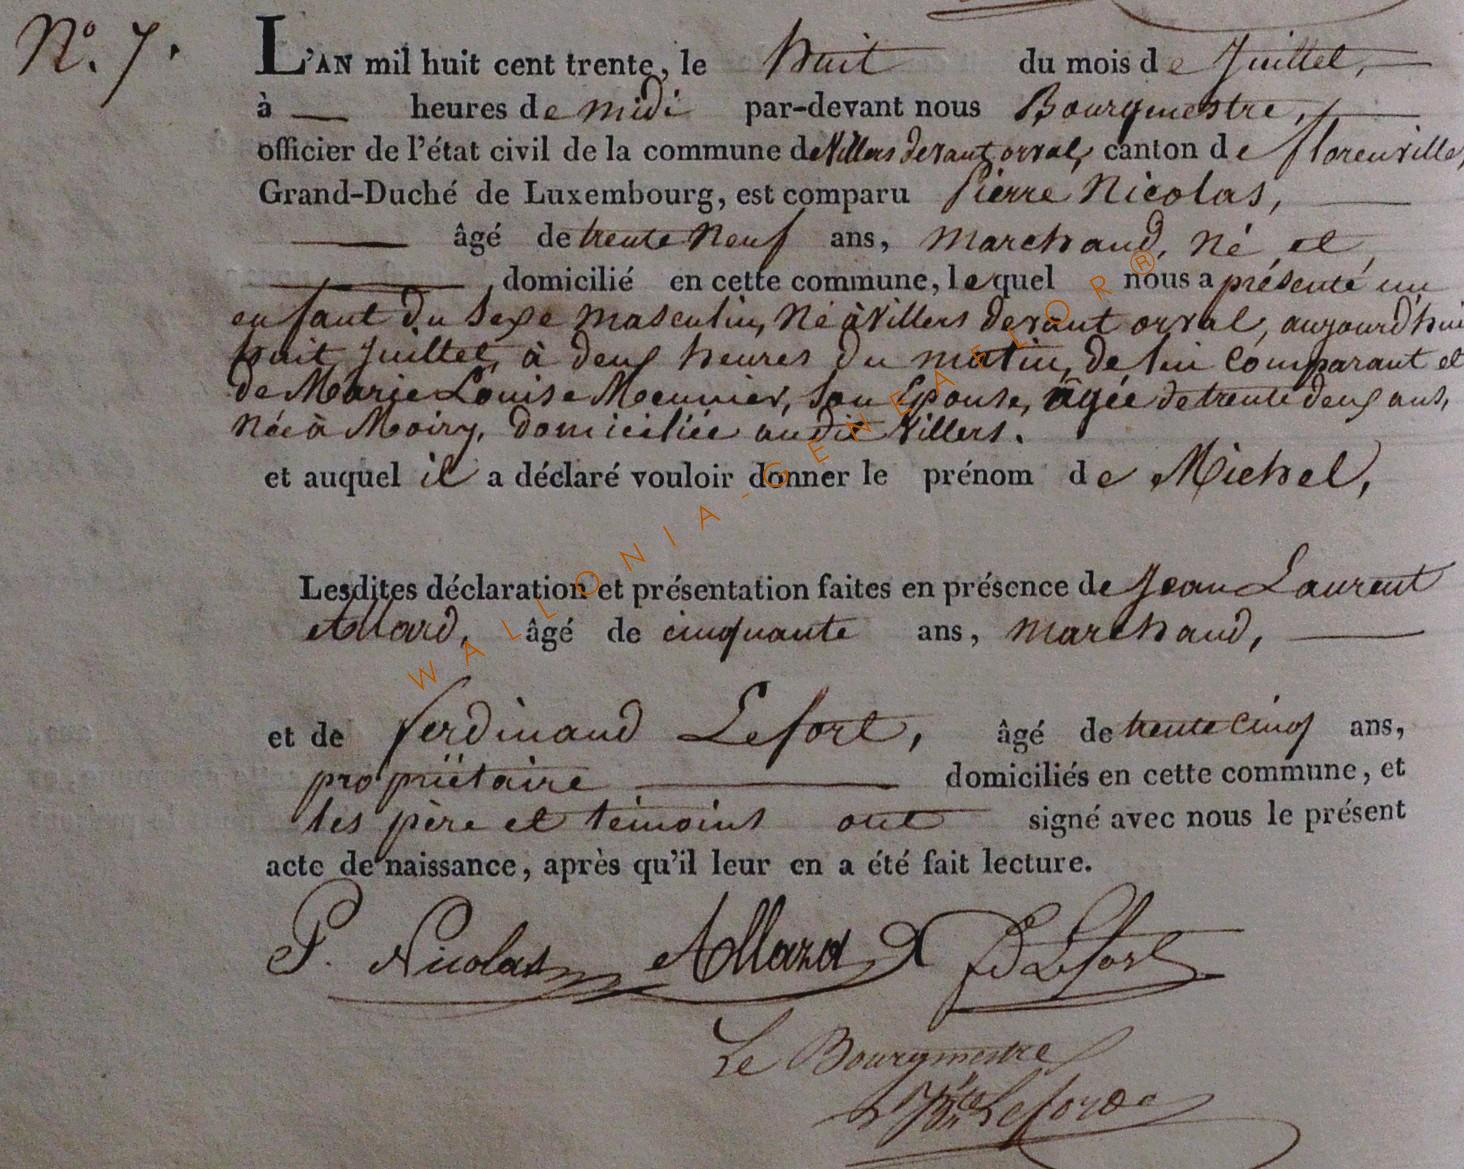 N.° 7.
L'AN mil huit cent trente, le huit du mois de Juillet,
à — heures de midi par-devant nous Bourgmestre,
officier de l'état civil de la commune de Villers devant orval, canton de florenville,
Grand-Duché de Luxembourg, est comparu Pierre Nicolas,
âgé de trente Neuf ans, Marchand, né et
domicilié en cette commune, lequel nous a présenté un
enfant du Sexe masculin, Né à Villers devant orval, aujourd'hui
huit Juillet, à deux heures du matin, de lui Comparant et
de Marie Louise Meunier, Son Epouse, âgée de trente deux ans,
Née à Moiry, domiciliée audit Villers.
et auquel il a déclaré vouloir donner le prénom de Michel,
Lesdites déclaration et présentation faites en présence de Jean Laurent
Allard, âgé de cinquante ans, Marchand,
et de ferdinand Lefort, âgé de trente Cinq ans,
propriëtaire domiciliés en cette commune, et
les père et témoins ont signé avec nous le présent
acte de naissance, après qu'il leur en a été fait lecture.
P. Nicolas Allard Lefort
Le Bourgmestre
WALLONIA-GENEAFLOR®